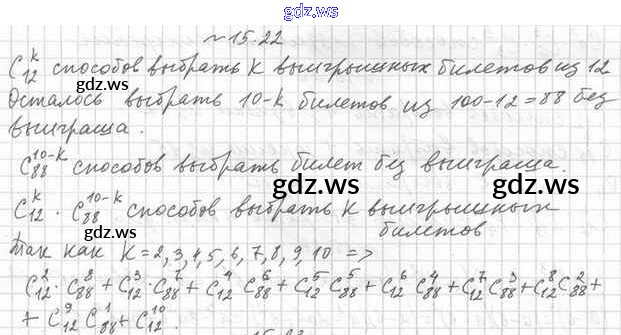 gdz.ws
№15.22
C₁₂ᵏ способов выбрать k выигрышных билетов из 12
Осталось выбрать 10-k билетов из 100-12=88 без
выиграша.
C₈₈¹⁰⁻ᵏ способов выбрать билет без выиграша.
gdz.ws gdz.ws
C₁₂ᵏ · C₈₈¹⁰⁻ᵏ способов выбрать k выигрышных
gdz.ws билетов
Так как k=2,3,4,5,6,7,8,9,10 =>
gdz.ws gdz.ws
C₁₂²·C₈₈⁸+C₁₂³·C₈₈⁷+C₁₂⁴C₈₈⁶+C₁₂⁵C₈₈⁵+C₁₂⁶C₈₈⁴+C₁₂⁷C₈₈³+C₁₂⁸C₈₈²+
+C₁₂⁹C₈₈¹+C₁₂¹⁰.
gdz.ws